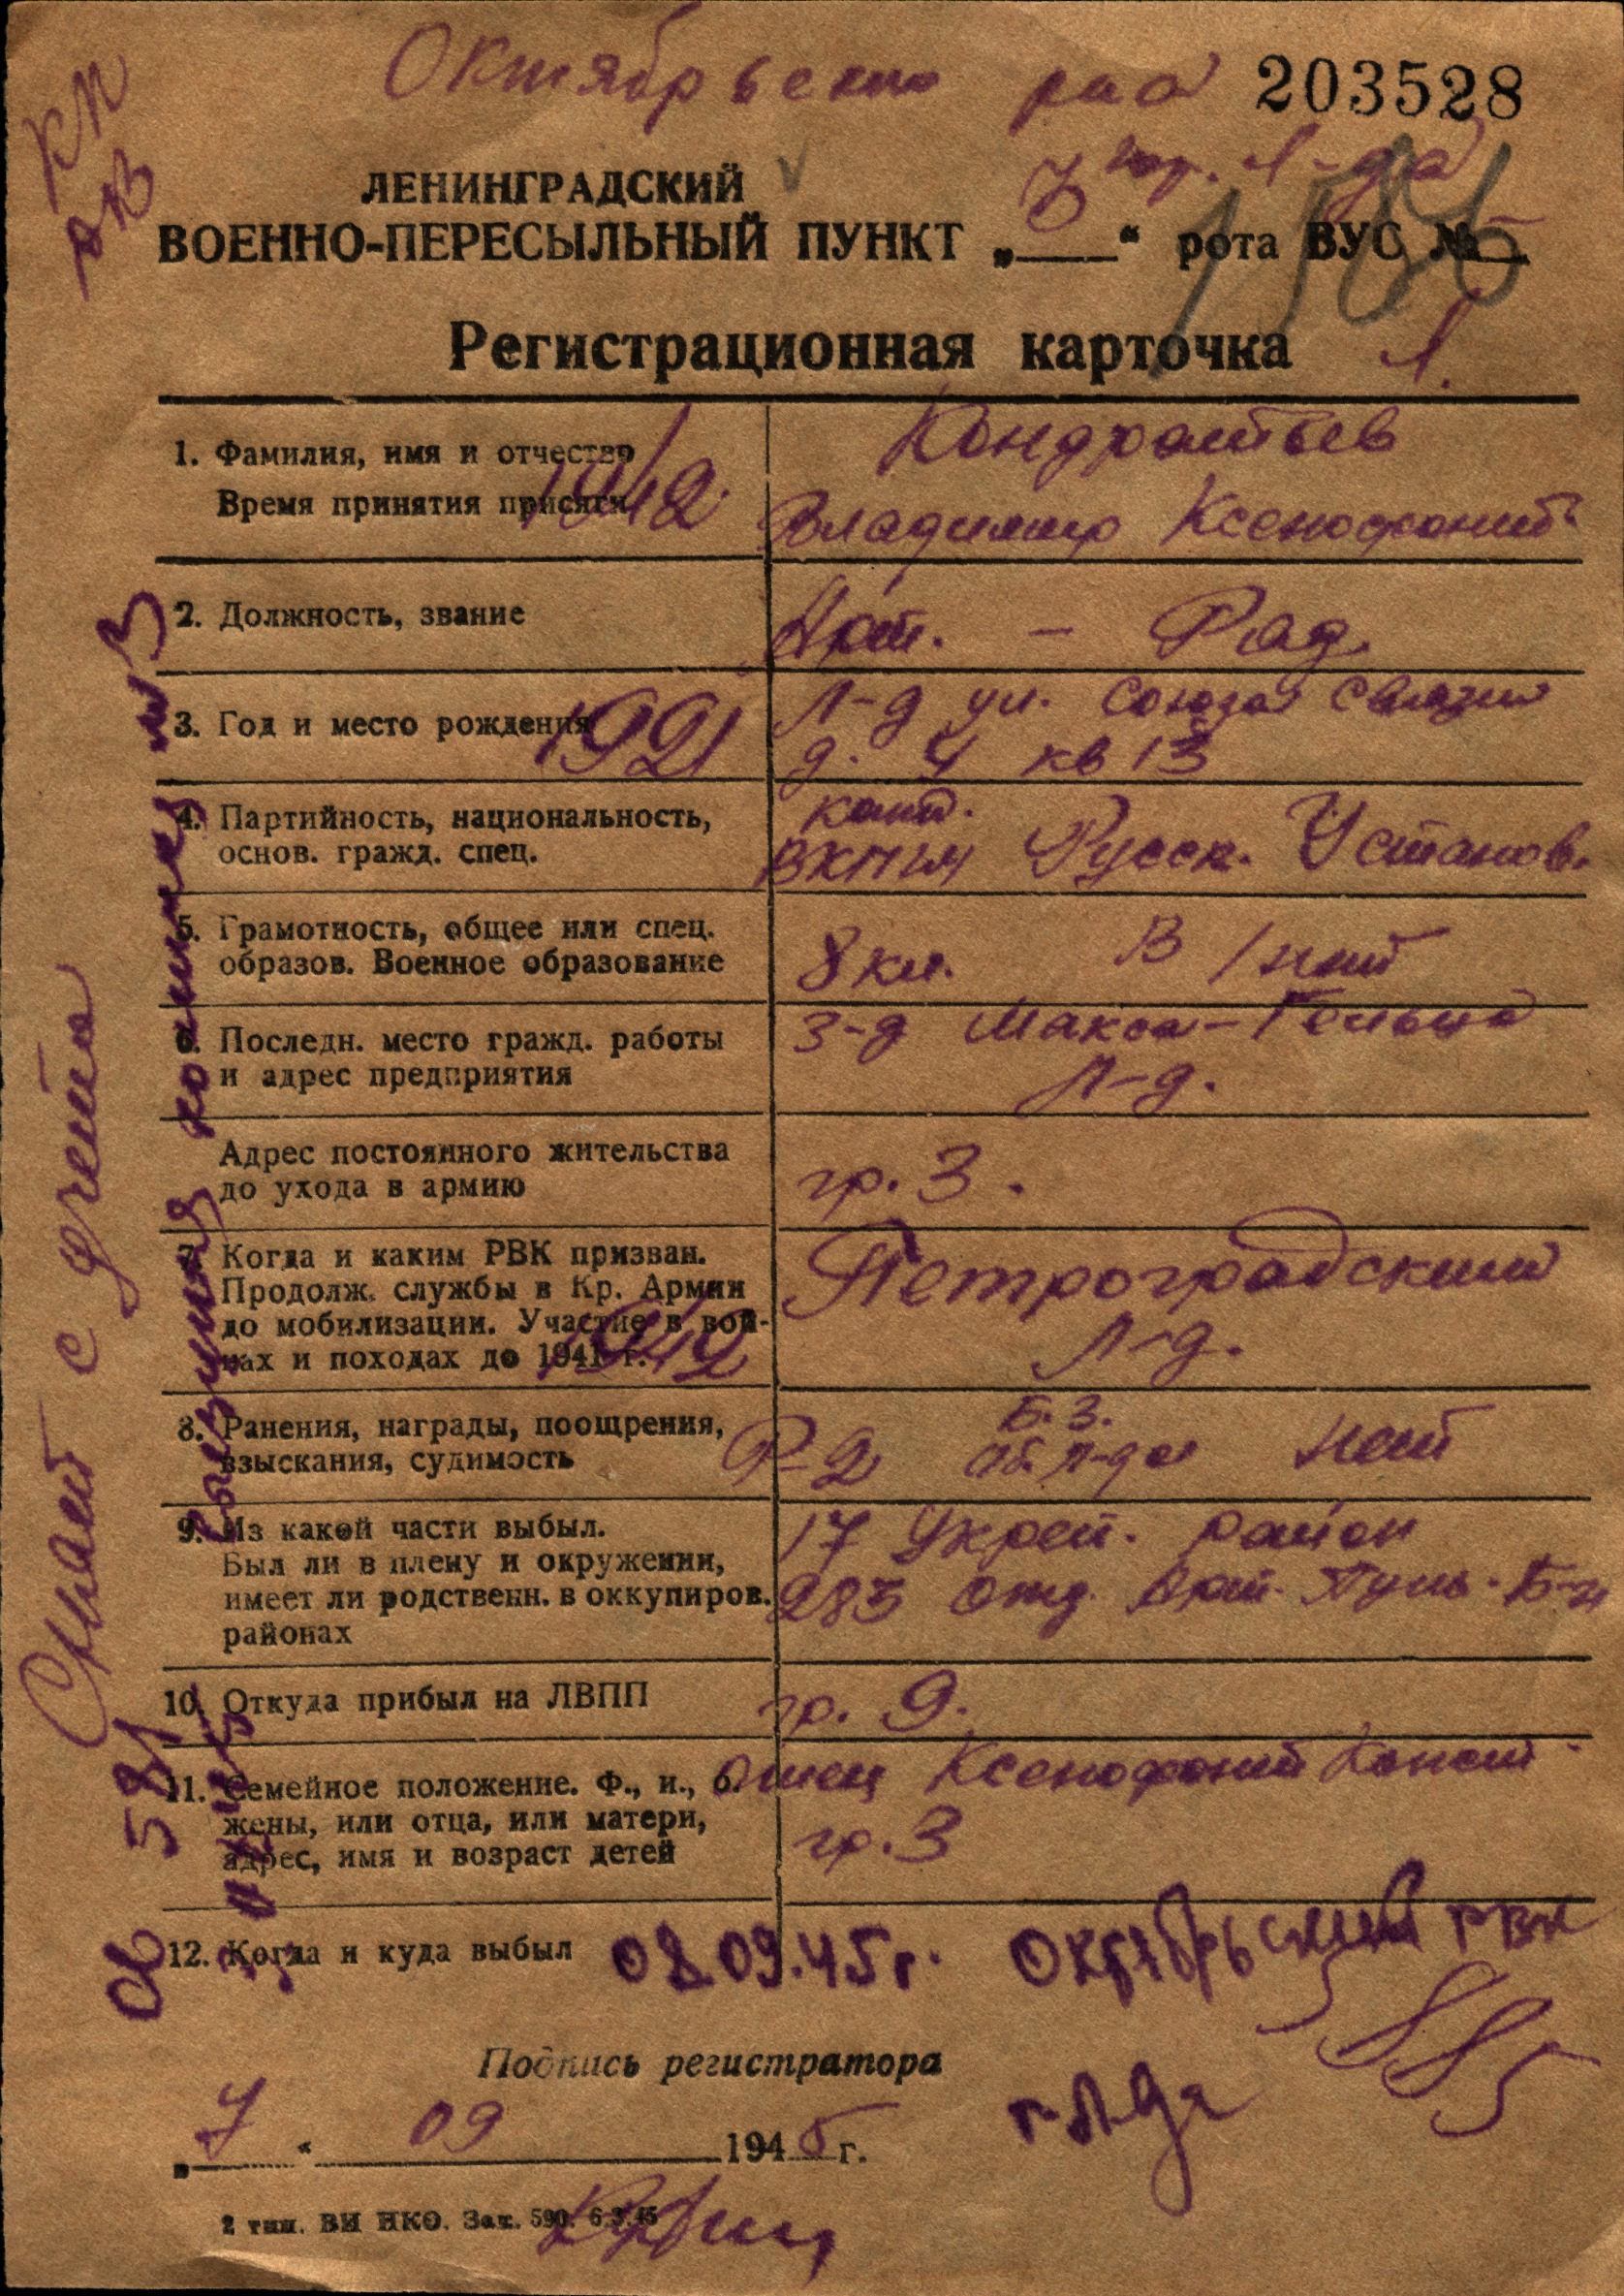 КП
РКВ
203528
ЛЕНИНГРАДСКИЙ
ВОЕННО-ПЕРЕСЫЛЬНЫЙ ПУНКТ „ “ рота ВУС №
Регистрационная карточка
1. Фамилия, имя и отчество
Кондратьев
Время принятия присяги 1942.
Владимир Ксенофонт.
2. Должность, звание
Арт. - Ряд.
3. Год и место рождения 1921
Л-д ул. Союза связи
д. 4 кв 13
4. Партийность, национальность,
основ. гражд. спец.
канд.
ВКП(б) Русск. Установ.
5. Грамотность, общее или спец.
образов. Военное образование
8 кл. В/нет
6. Последн. место гражд. работы
и адрес предприятия
З-д Макса-Гельца
Л-д.
Адрес постоянного жительства
до ухода в армию
гр. 3.
7. Когда и каким РВК призван.
Продолж. службы в Кр. Армии
до мобилизации. Участие в вой-
нах и походах до 1941 г. 1942
Петроградский
Л-д.
8. Ранения, награды, поощрения,
взыскания, судимость
Р-2 Б.З.
Об. Л-да нет
9. Из какой части выбыл.
Был ли в плену и окружении,
имеет ли родственн. в оккупиров.
районах
17 Укреп. район
283 отд. Арт. Пуль. Б-н
10. Откуда прибыл на ЛВПП
гр. 9.
11. Семейное положение. Ф., и., о.
жены, или отца, или матери,
адрес, имя и возраст детей
Отец Ксенофонт Конст.
гр. 3
12. Когда и куда выбыл 08.09.45 г. Октябрьский РВК
г. Л-да
Подпись регистратора
„7“ 09 1945 г.
2 тип. ВИ НКО. Зак. 590. 6.3.45
Снят с учета